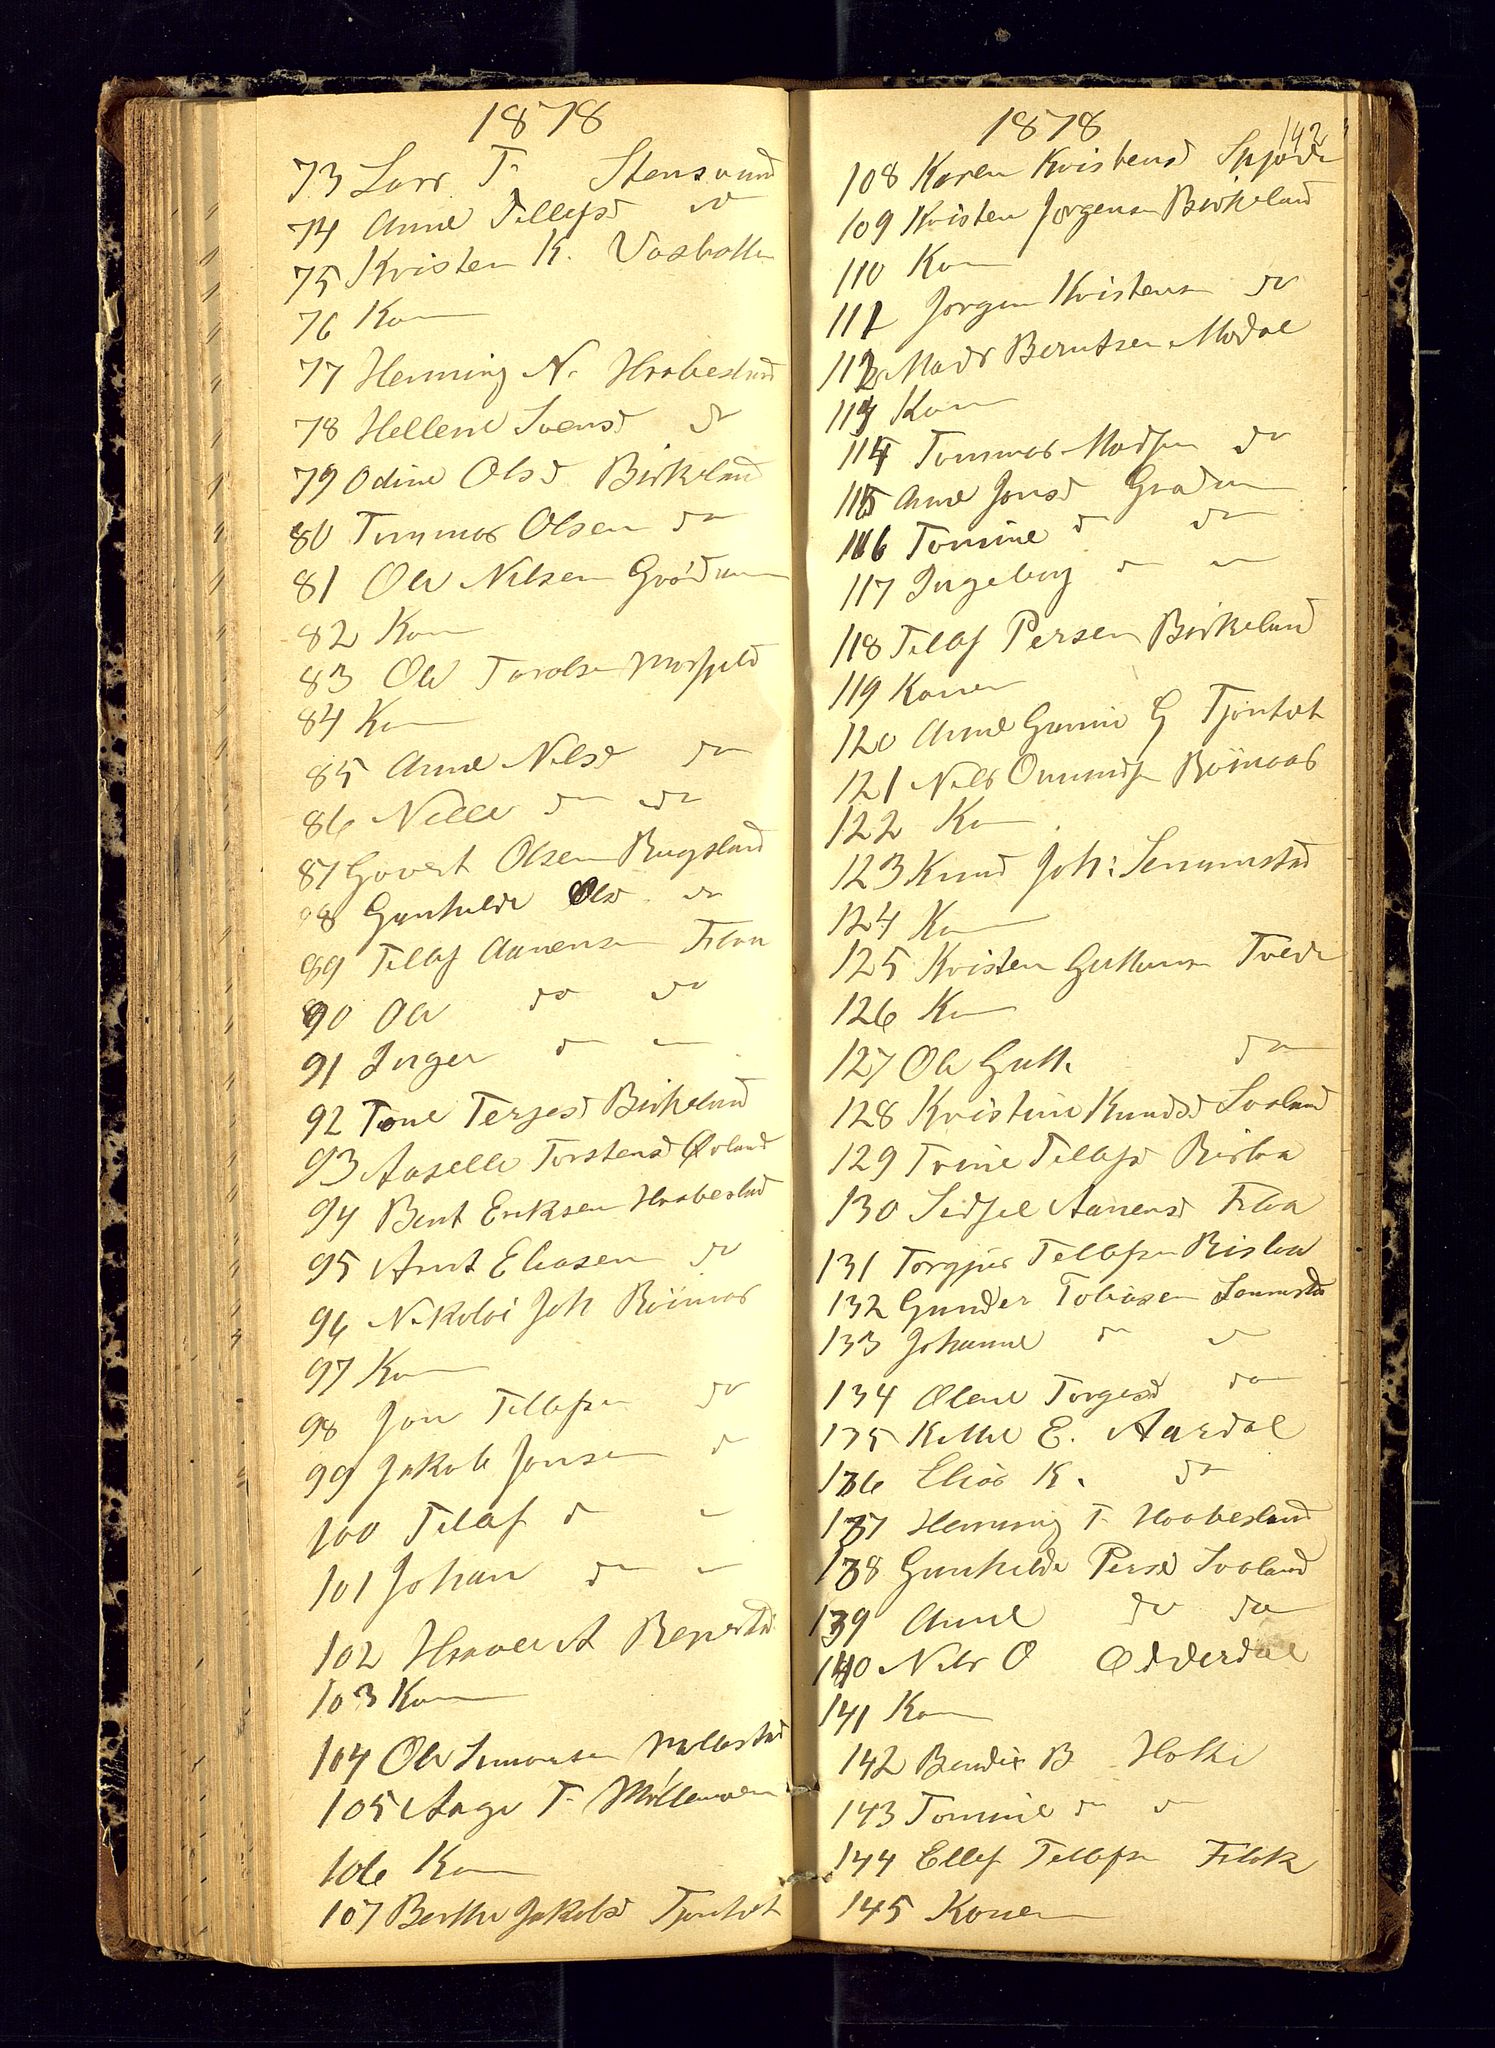 1878
73 Lars T. Stensvand
74 Anne Tellefsd do
75 Kristen K. Vasbotten
76 Kon
77 Henning N. Haabesland
78 Hellene Svensd do
79 Odine Olsd Birkeland
80 Tommas Olsen do
81 Ole Nilsen Grødum
82 Kon
83 Ole Taralsen
84 Kon
85 Anne Nilsd do
86 Nille do do
87 Govert Olsen Bugsland
88 Gunhilde Olsd do
89 Tellef Aanensen Flaa
90 Ole do do
91 Inger do
92 Tone Terjesd Birkeland
93 Aaselle Torstensd
94 Bent Eriksen Haabesland
95 Arnt Eliasen do
96 Nikolai Joh Røinaas
97 Kon
98 Jon Tellefsen do
99 Jakob Jonsen do
100 Tellef do
101 Johan do
102 Haavel A Repstad
103 Kon
104 Ole Simonsen
105 Aage T.
106 Kon
107 Berthe Jakobsd Tjomtvet
1878
142
108 Karen Kristensd
109 Kristen Jørgensen Birkeland
110 Kon
111 Jørgen Kristensen do
112 Mads Berntsen Modal
113 Kon
114 Tommas Madsen do
115 Anne Jonsd Grødum
116 Tomine d do
117 Ingeborg do
118 Tellef Persen Birkeland
119 Konen
120 Anne Gurine G Tjomtvet
121 Nils Ommundsen Røinaas
122 Kon
123 Knud Joh:
124 Kon
125 Kristen Guttorms Tvede
126 Kon
127 Ole Gutt. do
128 Kristine Knudsd Svaland
129 Trine Tellefsd Rislaa
130 Sidsel Aanensd Flaa
131 Torgjus Tellefsen Rislaa
132 Gunder Tobiasen
133 Johanne do
134 Olene Torgesd do
135 Kittel E. Aardal
136 Elias K. do
137 Henning T. Haabesland
138 Gunhilde Persd Svaland
139 Anne do do
140 Nils O Odderdal
141 Kon
142 Bendix B Holte
143 Tomine do
144 Ellef Tellefsen Flak
145 Konen